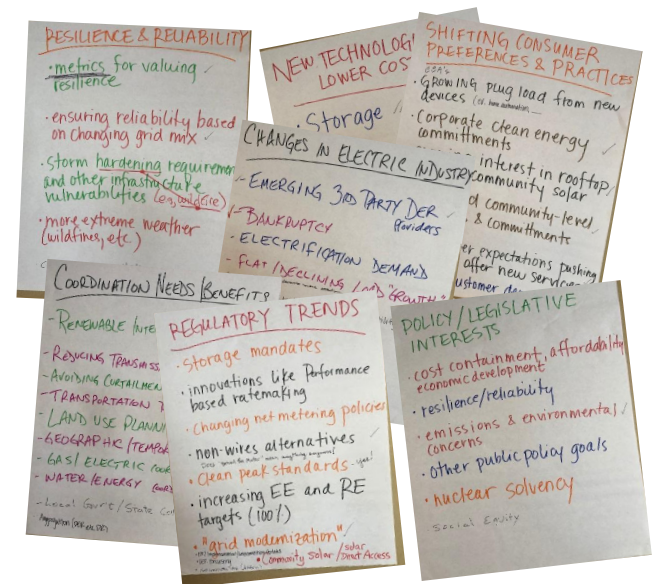 RESILIENCE & RELIABILITY
• metrics for valuing
resilience
• ensuring reliability based
on changing grid mix
• Storm hardening requiremen
and other infrastructure
vulnerabilities (eg, wildfire)
• more extreme weather
(wildfires, etc.)
NEW TECHNOLOGI
LOWER COS
• Storage
SHIFTING CONSUMER
PREFERENCES & PRACTICES
• GROWING plug load from new
devices
• Corporate clean energy
commitments
interest in rooftop/
community solar
d community-level
& commitments
er expectations pushing
offer new service
ustomer de
CHANGES IN ELECTRIC INDUSTRY
- EMERGING 3RD PARTY DER
Providers
- BANKRUPTCY
- ELECTRIFICATION DEMAND
- FLAT/DECLINING LOAD "GROWTH"
COORDINATION NEEDS/BENEFITS
- RENEWABLE INTE
- REDUCING TRANSMISS
- AVOIDING CURTAILMEN
- TRANSPORTATION
- LAND USE PLANNI
- GEOGRAPHIC/TEMPOR
- GAS/ELECTRIC COOR
- WATER/ENERGY (COOR
- Local Govt/State Co
REGULATORY TRENDS
• Storage mandates
• innovations like Performance
based ratemaking
• changing net metering policies
• non-wires alternatives
• Clean peak standards - yes!
• increasing EE and RE
targets (100%)
• "grid modernization"
• Community solar/solar
Direct Access
POLICY/LEGISLATIVE
INTERESTS
• cost containment, affordability
economic development
• resilience/reliability
• emissions & environmental
concerns
• other public policy goals
• nuclear solvency
Social Equity